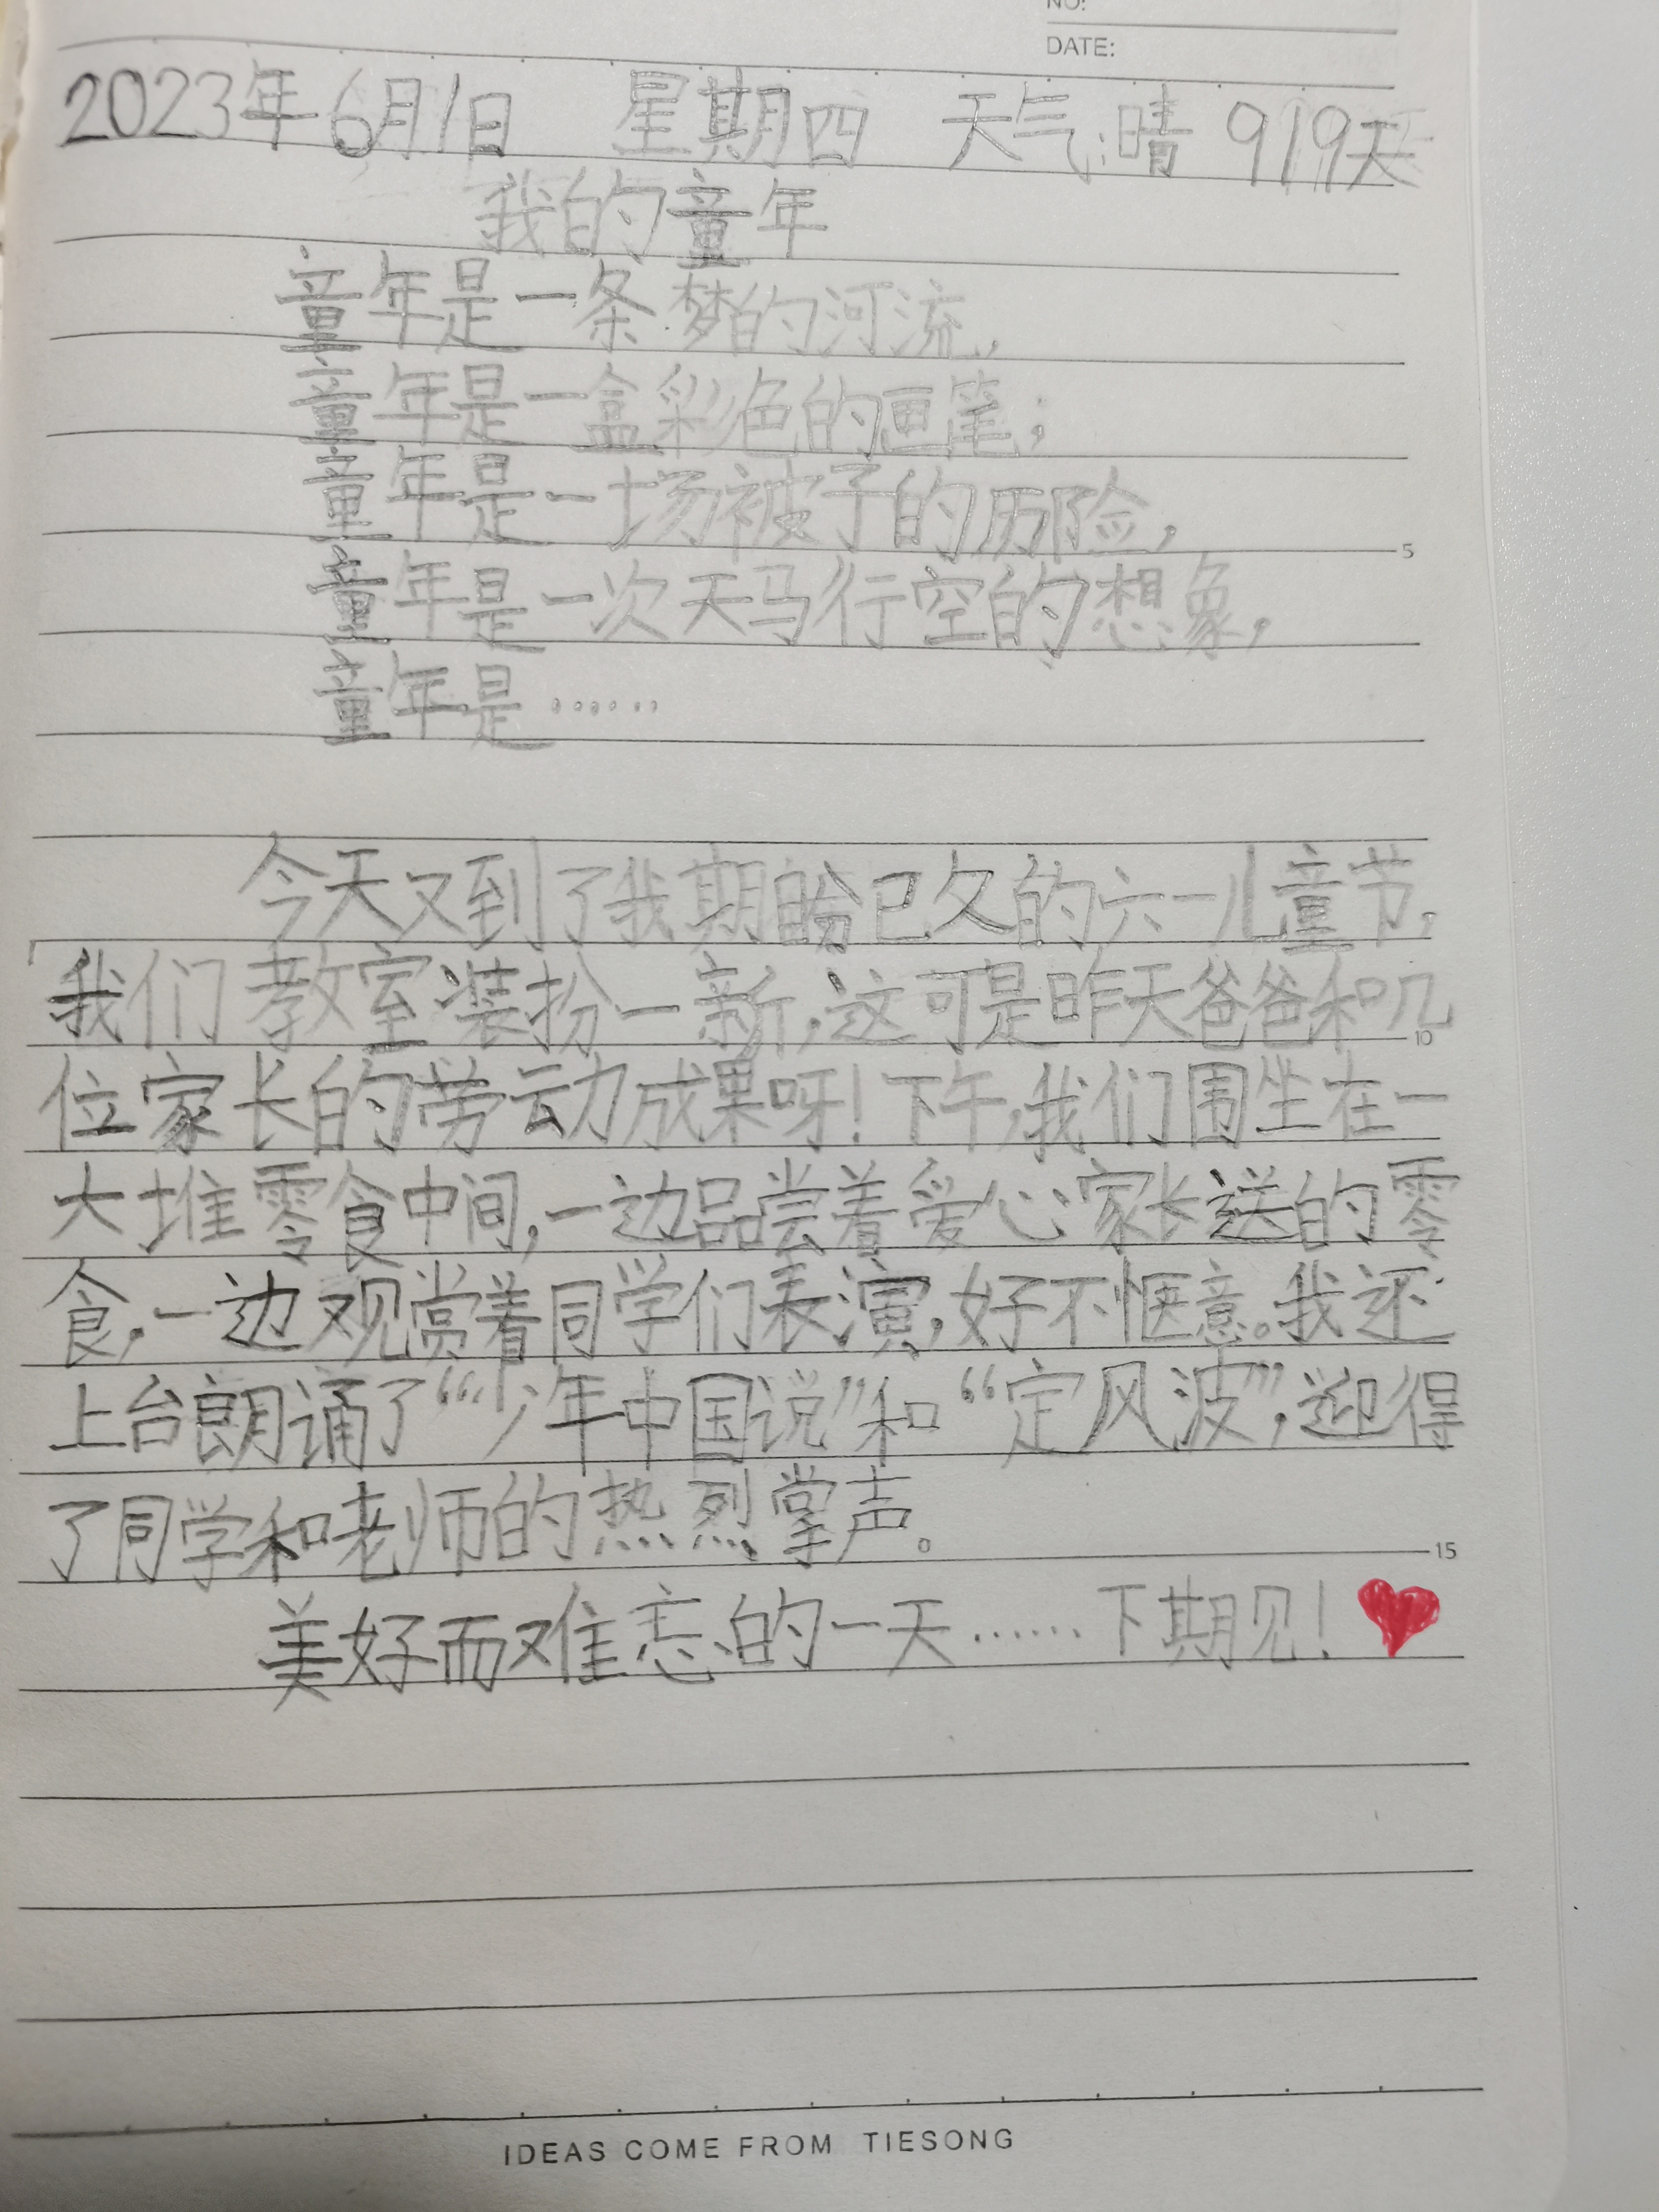 NO:
DATE:
2023年6月1日 星期四 天气:晴 919天
我的童年
童年是一条梦的河流,
童年是一盒彩色的画笔;
童年是一场被子的历险,
童年是一次天马行空的想象,
童年是……
今天又到了我期盼已久的六一儿童节,
我们教室装扮一新,这可是昨天爸爸和几
10
位家长的劳动成果呀!下午,我们围坐在一
大堆零食中间,一边品尝着爱心家长送的零
食,一边观赏着同学们表演,好不惬意。我还
上台朗诵了“少年中国说”和“定风波”,迎得
了同学和老师的热烈掌声。
15
美好而难忘的一天……下期见!
5
IDEAS COME FROM TIESONG